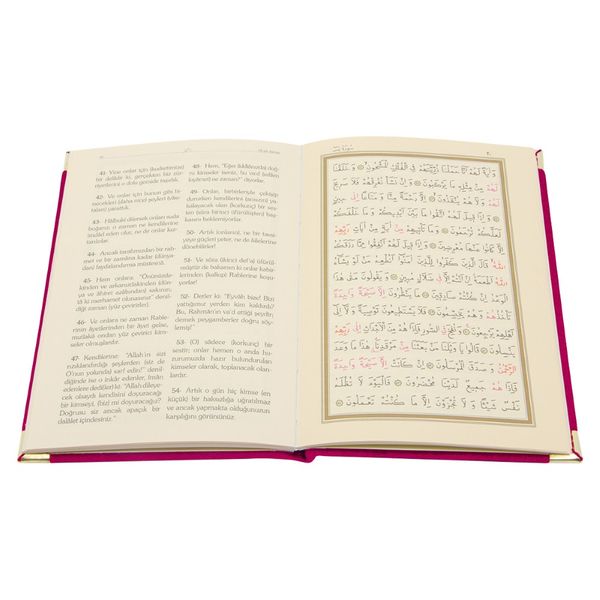 41- Yine onlar için (kudretimize)
bir delildir ki, gerçekten biz
zürriyetlerini o dolu gemide taşıdık.
42- Ve onlar için bunun gibi
binecekleri (daha nice) şeyleri
yarattık.
43- Hâlbuki dilemek onları suda
boğarız; o zaman ne kendilerine
imdâd eden olur, ne de onlar kur-
tarılırlar.
44- Ancak tarafımızdan bir rah-
met ve bir zamana kadar (dünya-
dan) faydalandırma müstesnâ.
45- Hem onlara: "Önünüzde-
kinden ve arkanızdakinden (dün-
ya ve âhiret azâbından) sakının;
tâ ki merhamet olunasınız" denil-
diği zaman (yüz çevirirler).
46- Ve onlara ne zaman Rable-
rinin âyetlerinden bir âyet gelse,
mutlaka ondan yüz çevirici kim-
seler olmuşlardır.
47- Kendilerine: "Allah'ın sizi
rızıklandırdığı şeylerden (siz de
O'nun yolunda) sarf edin!" denil-
diğinde ise o inkâr edenler, îmân
edenlere dediler ki: "Allah dileye-
cek olsaydı kendisini doyuracağı
bir kimseyi, (biz) mi doyuracağız?
Doğrusu siz ancak apaçık bir
dalâlet içindesiniz."
48- Hem, "Eğer (iddiânızda) doğ-
ru kimseler iseniz, bu vaad (edilen
kıyâmet) ne zaman?" diyorlar.
49- Onlar, birbirleriyle çekişip
dururlarken kendilerini (ansızın) ya-
kalayacak olan (korkunç) bir ses-
den (sûra birinci üfürülüşten) baş-
kasını beklemiyorlar.
50- Artık (onlar) ne bir tavsi-
yeye güçleri yeter, ne de âilelerine
dönebilirler!
51- Ve sûra (ikinci def'a) üfürül-
müştür de bakarsın ki onlar kabir-
lerinden (kalkıp) Rablerine koşu-
yorlar.
52- Derler ki: "Eyvâh bize! Bizi
yattığımız yerden kim kaldırdı?
Bu, Rahmân'ın va'd ettiği şeydir;
demek peygamberler doğru söyle-
miş!"
53- (O) sâdece (korkunç) bir
sestir; onlar hemen o anda hu-
zurumuzda hazır bulundurulan
kimseler olarak, toplanacak olan-
lardır.
54- Artık o gün hiç kimse (en
küçük) bir haksızlığa uğratılmaz
ve ancak yapmakta olduğunuzun
karşılığını görürsünüz.
وَاٰيَةٌ لَهُمْ اَنَّا حَمَلْنَا ذُرِّيَّتَهُمْ فِي الْفُلْكِ الْمَشْحُونِ وَخَلَقْنَا
لَهُمْ مِنْ مِثْلِهِ مَا يَرْكَبُونَ وَاِنْ نَشَأْ نُغْرِقْهُمْ فَلَا صَرِيخَ
لَهُمْ وَلَا هُمْ يُنْقَذُونَ اِلَّا رَحْمَةً مِنَّا وَمَتَاعًا اِلٰى
حِينٍ وَاِذَا قِيلَ لَهُمُ اتَّقُوا مَا بَيْنَ اَيْدِيكُمْ وَمَا خَلْفَكُمْ
لَعَلَّكُمْ تُرْحَمُونَ وَمَا تَأْتِيهِمْ مِنْ اٰيَةٍ مِنْ اٰيَاتِ رَبِّهِمْ
اِلَّا كَانُوا عَنْهَا مُعْرِضِينَ وَاِذَا قِيلَ لَهُمْ اَنْفِقُوا مِمَّا رَزَقَكُمُ
اللّٰهُ قَالَ الَّذِينَ كَفَرُوا لِلَّذِينَ اٰمَنُوا اَنُطْعِمُ مَنْ لَوْ يَشَاءُ
اللّٰهُ اَطْعَمَهُ اِنْ اَنْتُمْ اِلَّا فِي ضَلَالٍ مُبِينٍ وَيَقُولُونَ مَتٰى هٰذَا
الْوَعْدُ اِنْ كُنْتُمْ صَادِقِينَ مَا يَنْظُرُونَ اِلَّا صَيْحَةً وَاحِدَةً
تَأْخُذُهُمْ وَهُمْ يَخِصِّمُونَ فَلَا يَسْتَطِيعُونَ تَوْصِيَةً وَلَا اِلٰى
اَهْلِهِمْ يَرْجِعُونَ وَنُفِخَ فِي الصُّورِ فَاِذَا هُمْ مِنَ الْاَجْدَاثِ اِلٰى رَبِّهِمْ
يَنْسِلُونَ قَالُوا يَا وَيْلَنَا مَنْ بَعَثَنَا مِنْ مَرْقَدِنَا هٰذَا مَا وَعَدَ
الرَّحْمٰنُ وَصَدَقَ الْمُرْسَلُونَ اِنْ كَانَتْ اِلَّا صَيْحَةً وَاحِدَةً
فَاِذَا هُمْ جَمِيعٌ لَدَيْنَا مُحْضَرُونَ فَالْيَوْمَ لَا تُظْلَمُ
نَفْسٌ شَيْئًا وَلَا تُجْزَوْنَ اِلَّا مَا كُنْتُمْ تَعْمَلُونَ